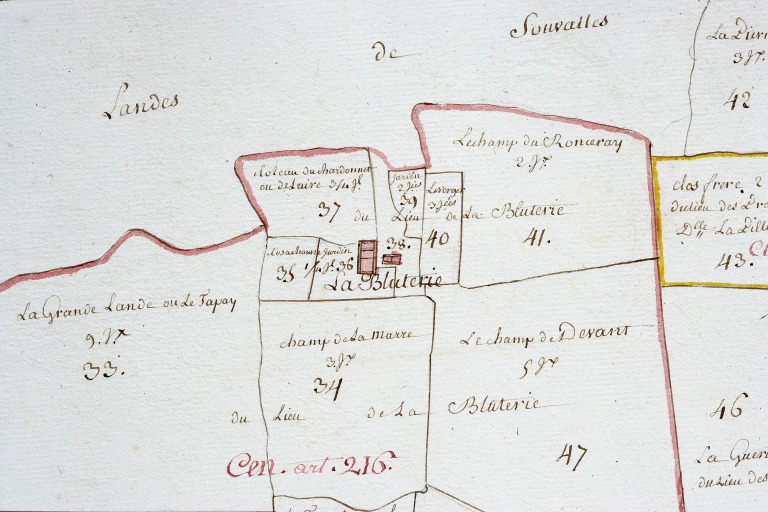 Landes
de
Souvalles
42
Le champ du Ronceray
2 Jx
Cloteau du chardonnet
ou de Laire 3/4 Jl
37
Jardin
39
Le verger
40
du Lieu de La Bluterie
41.
clos frere 2
du lieu des
Dlle La
43.
35
Jardin
36
38.
La Bluterie
La Grande Lande ou Le Tapay
9. Jx
33.
champ de La Marre
3 Jx
34
Le champ de Devant
5 Jx
du Lieu de La Bluterie
46
47
Cen. art. 216.
La
du Lieu des